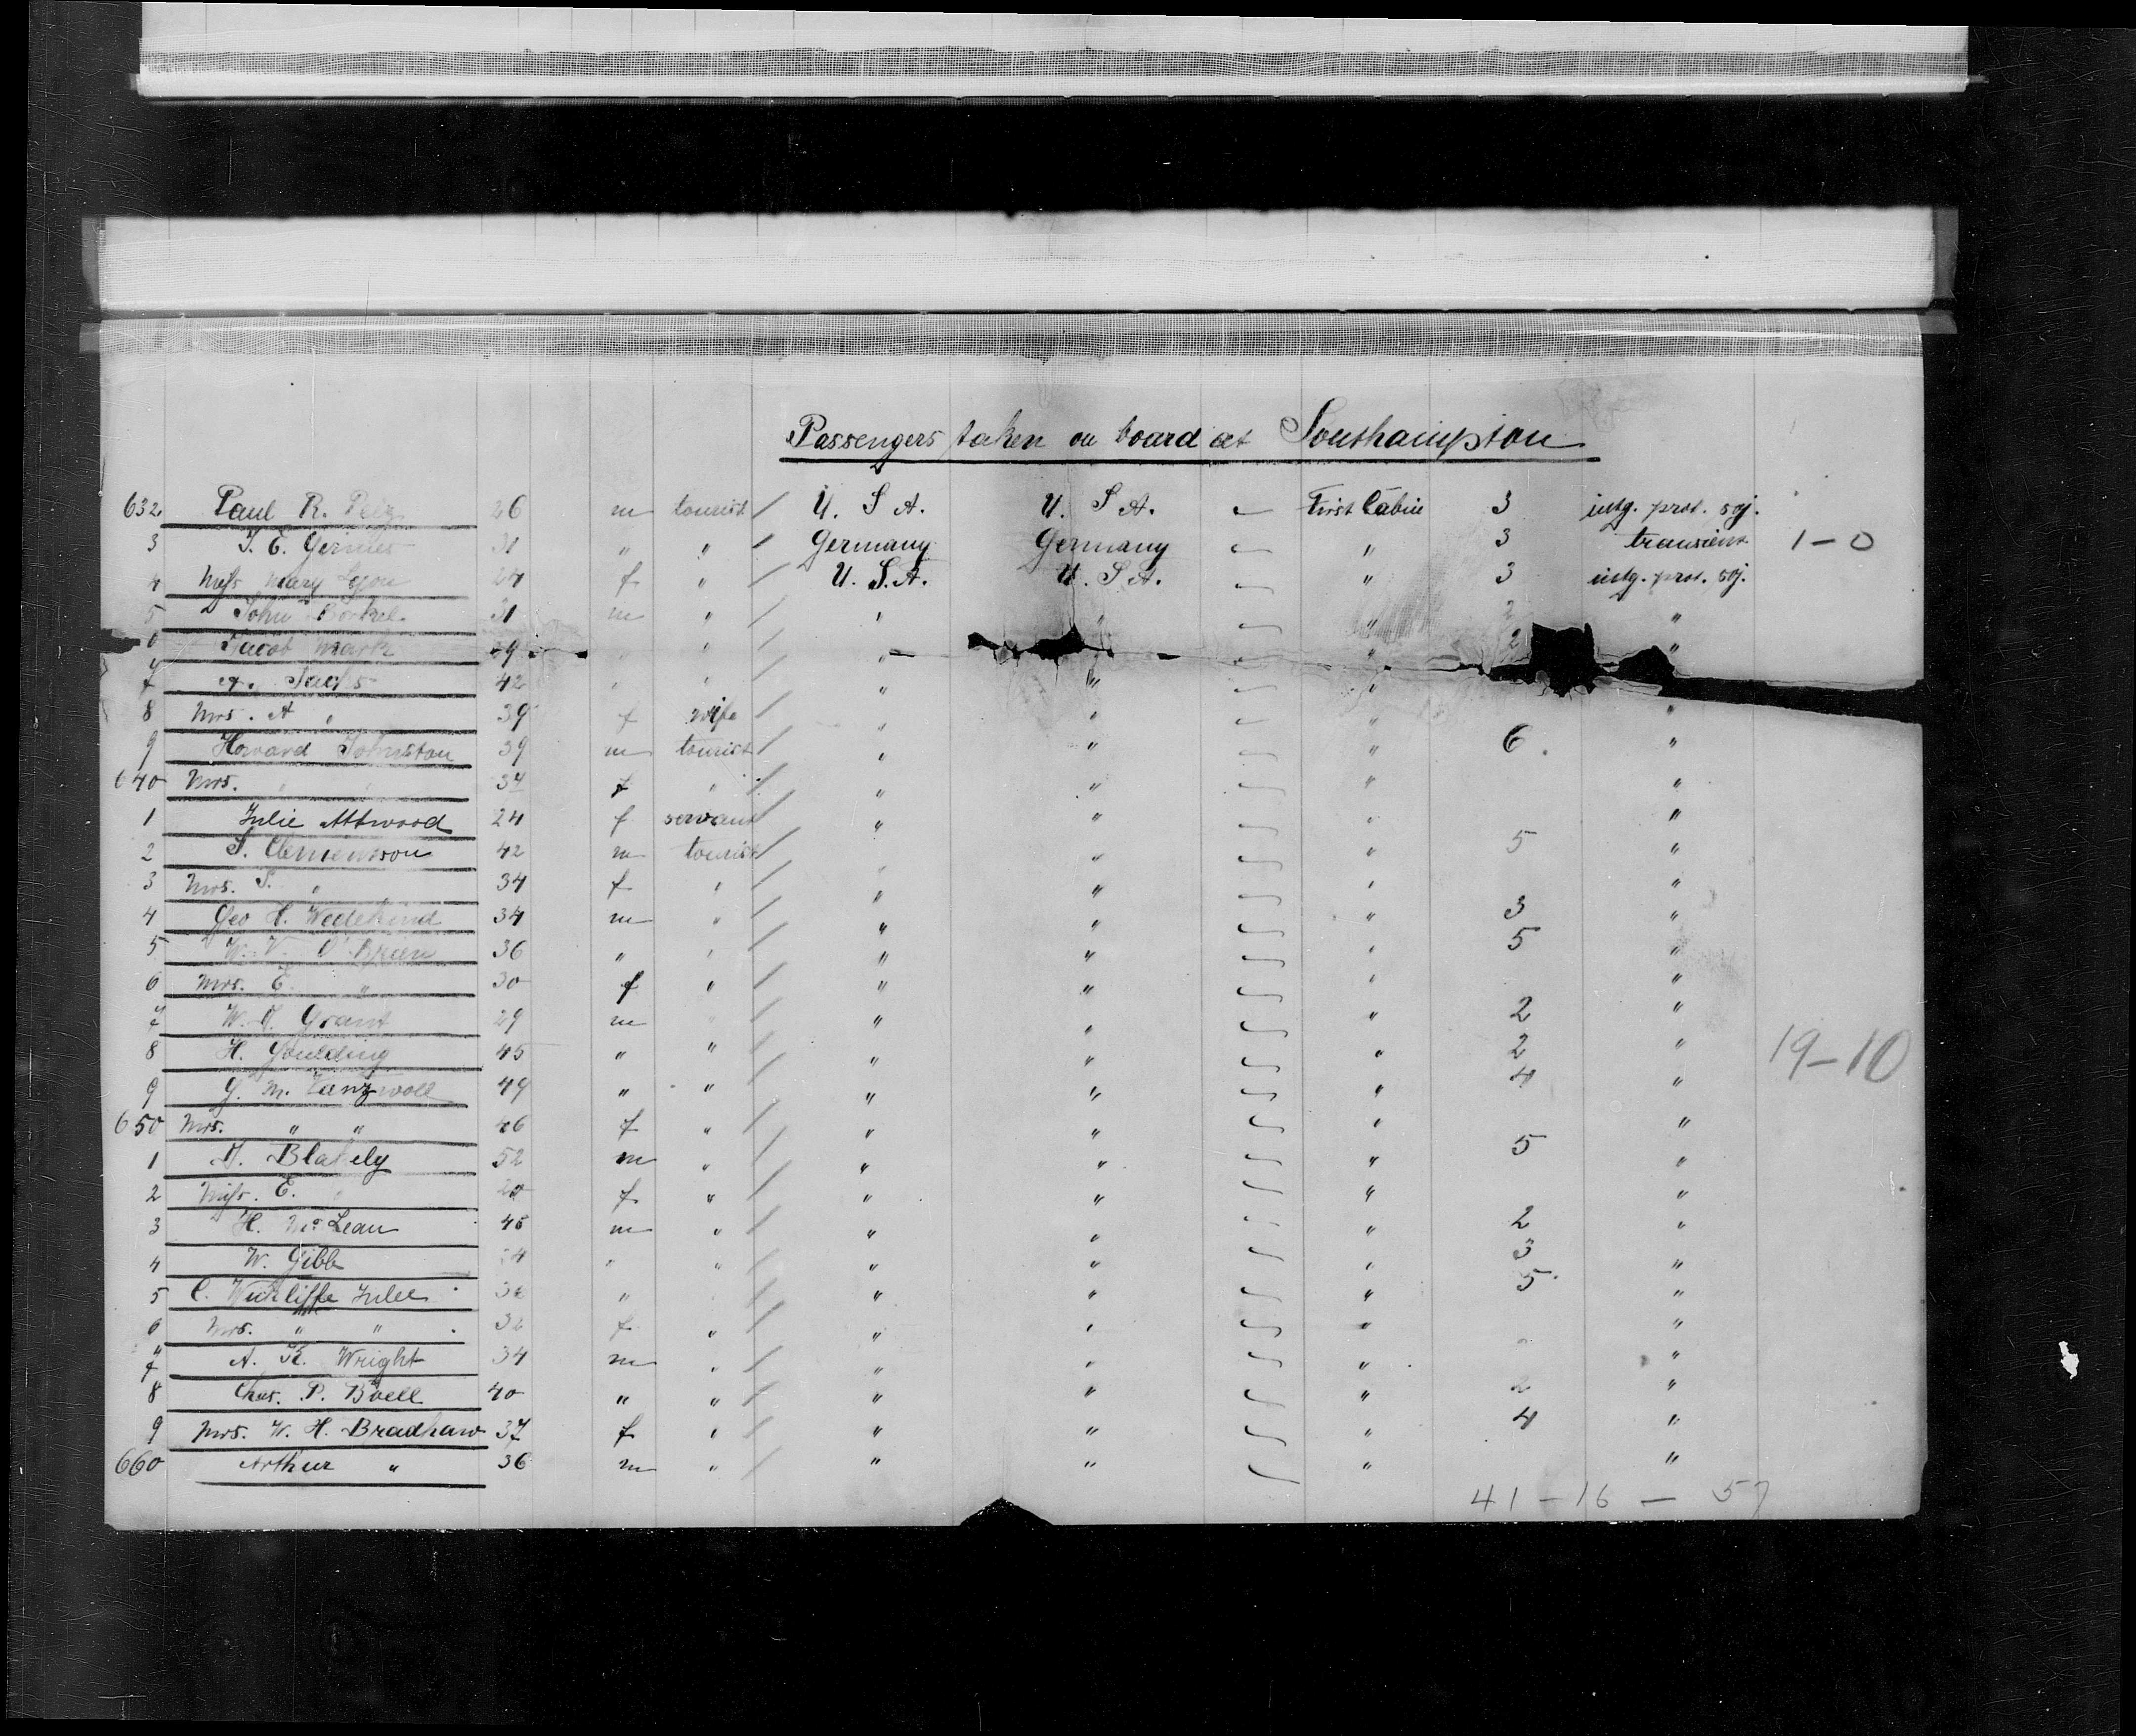 Passengers taken on board at Southampton
632 Paul R. Pelz 26 m tourist / U. S. A. U. S. A. First Cabin 3 intg. prot. soj.
3 J. E. 31 " " / Germany Germany " 3 transient 1-0
4 Miss Mary Lyon 24 f " / U. S. A. U. S. A. " 3 intg. prot. soj.
5 John 31 m " / " " " 2 "
6 Jacob Mark 29 " " / " " " 2 "
7 A. Sachs 42 " " / " " "
8 Mrs. A " 39 f wife / " " " "
9 Howard Johnston 39 m tourist / " " " 6 "
640 Mrs. " " 34 f " / " " " "
1 Julie Attwood 24 f servant / " " " "
2 S. Clemenson 42 m tourist / " " " 5 "
3 Mrs. S. " 34 f " / " " " "
4 Geo H. Wedekind 34 m " / " " " 3 "
5 W. V. O'Brien 36 " " / " " " 5 "
6 Mrs. E. " 30 f " / " " " "
7 W. H. Grant 29 m " / " " " 2 "
8 H. Goulding 45 " " / " " " 2 " 19-10
9 G. M. 49 " " / " " " 4 "
650 Mrs. " " 46 f " / " " " "
1 Blakely 52 m " / " " " 5 "
2 Miss. E. " 20 f " / " " " "
3 H. McLean 45 m " / " " " 2 "
4 W. Gibb 34 " " / " " " 3 "
5 C. Wickliffe 36 " " / " " " 5 "
6 Mrs. " " 32 f " / " " " "
7 A. K. Wright 34 m " / " " " "
8 Chas. P. 40 " " / " " " 2 "
9 Mrs. W. H. Bradhaw 37 f " / " " " 4 "
660 Arthur " 36 m " / " " " "
41 - 16 - 57